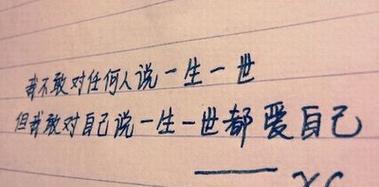 我不敢对任何人说一生一世
但我敢对自己说一生一世都爱自己